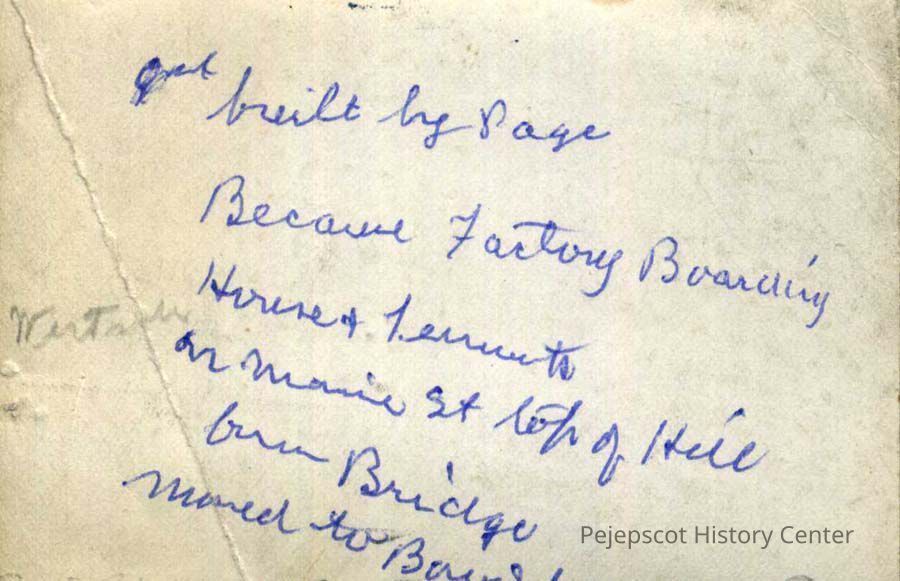 built by Page
Became Factory Boarding
House & Tenements
on Maine St top of Hill
Bridge
moved to
Pejepscot History Center